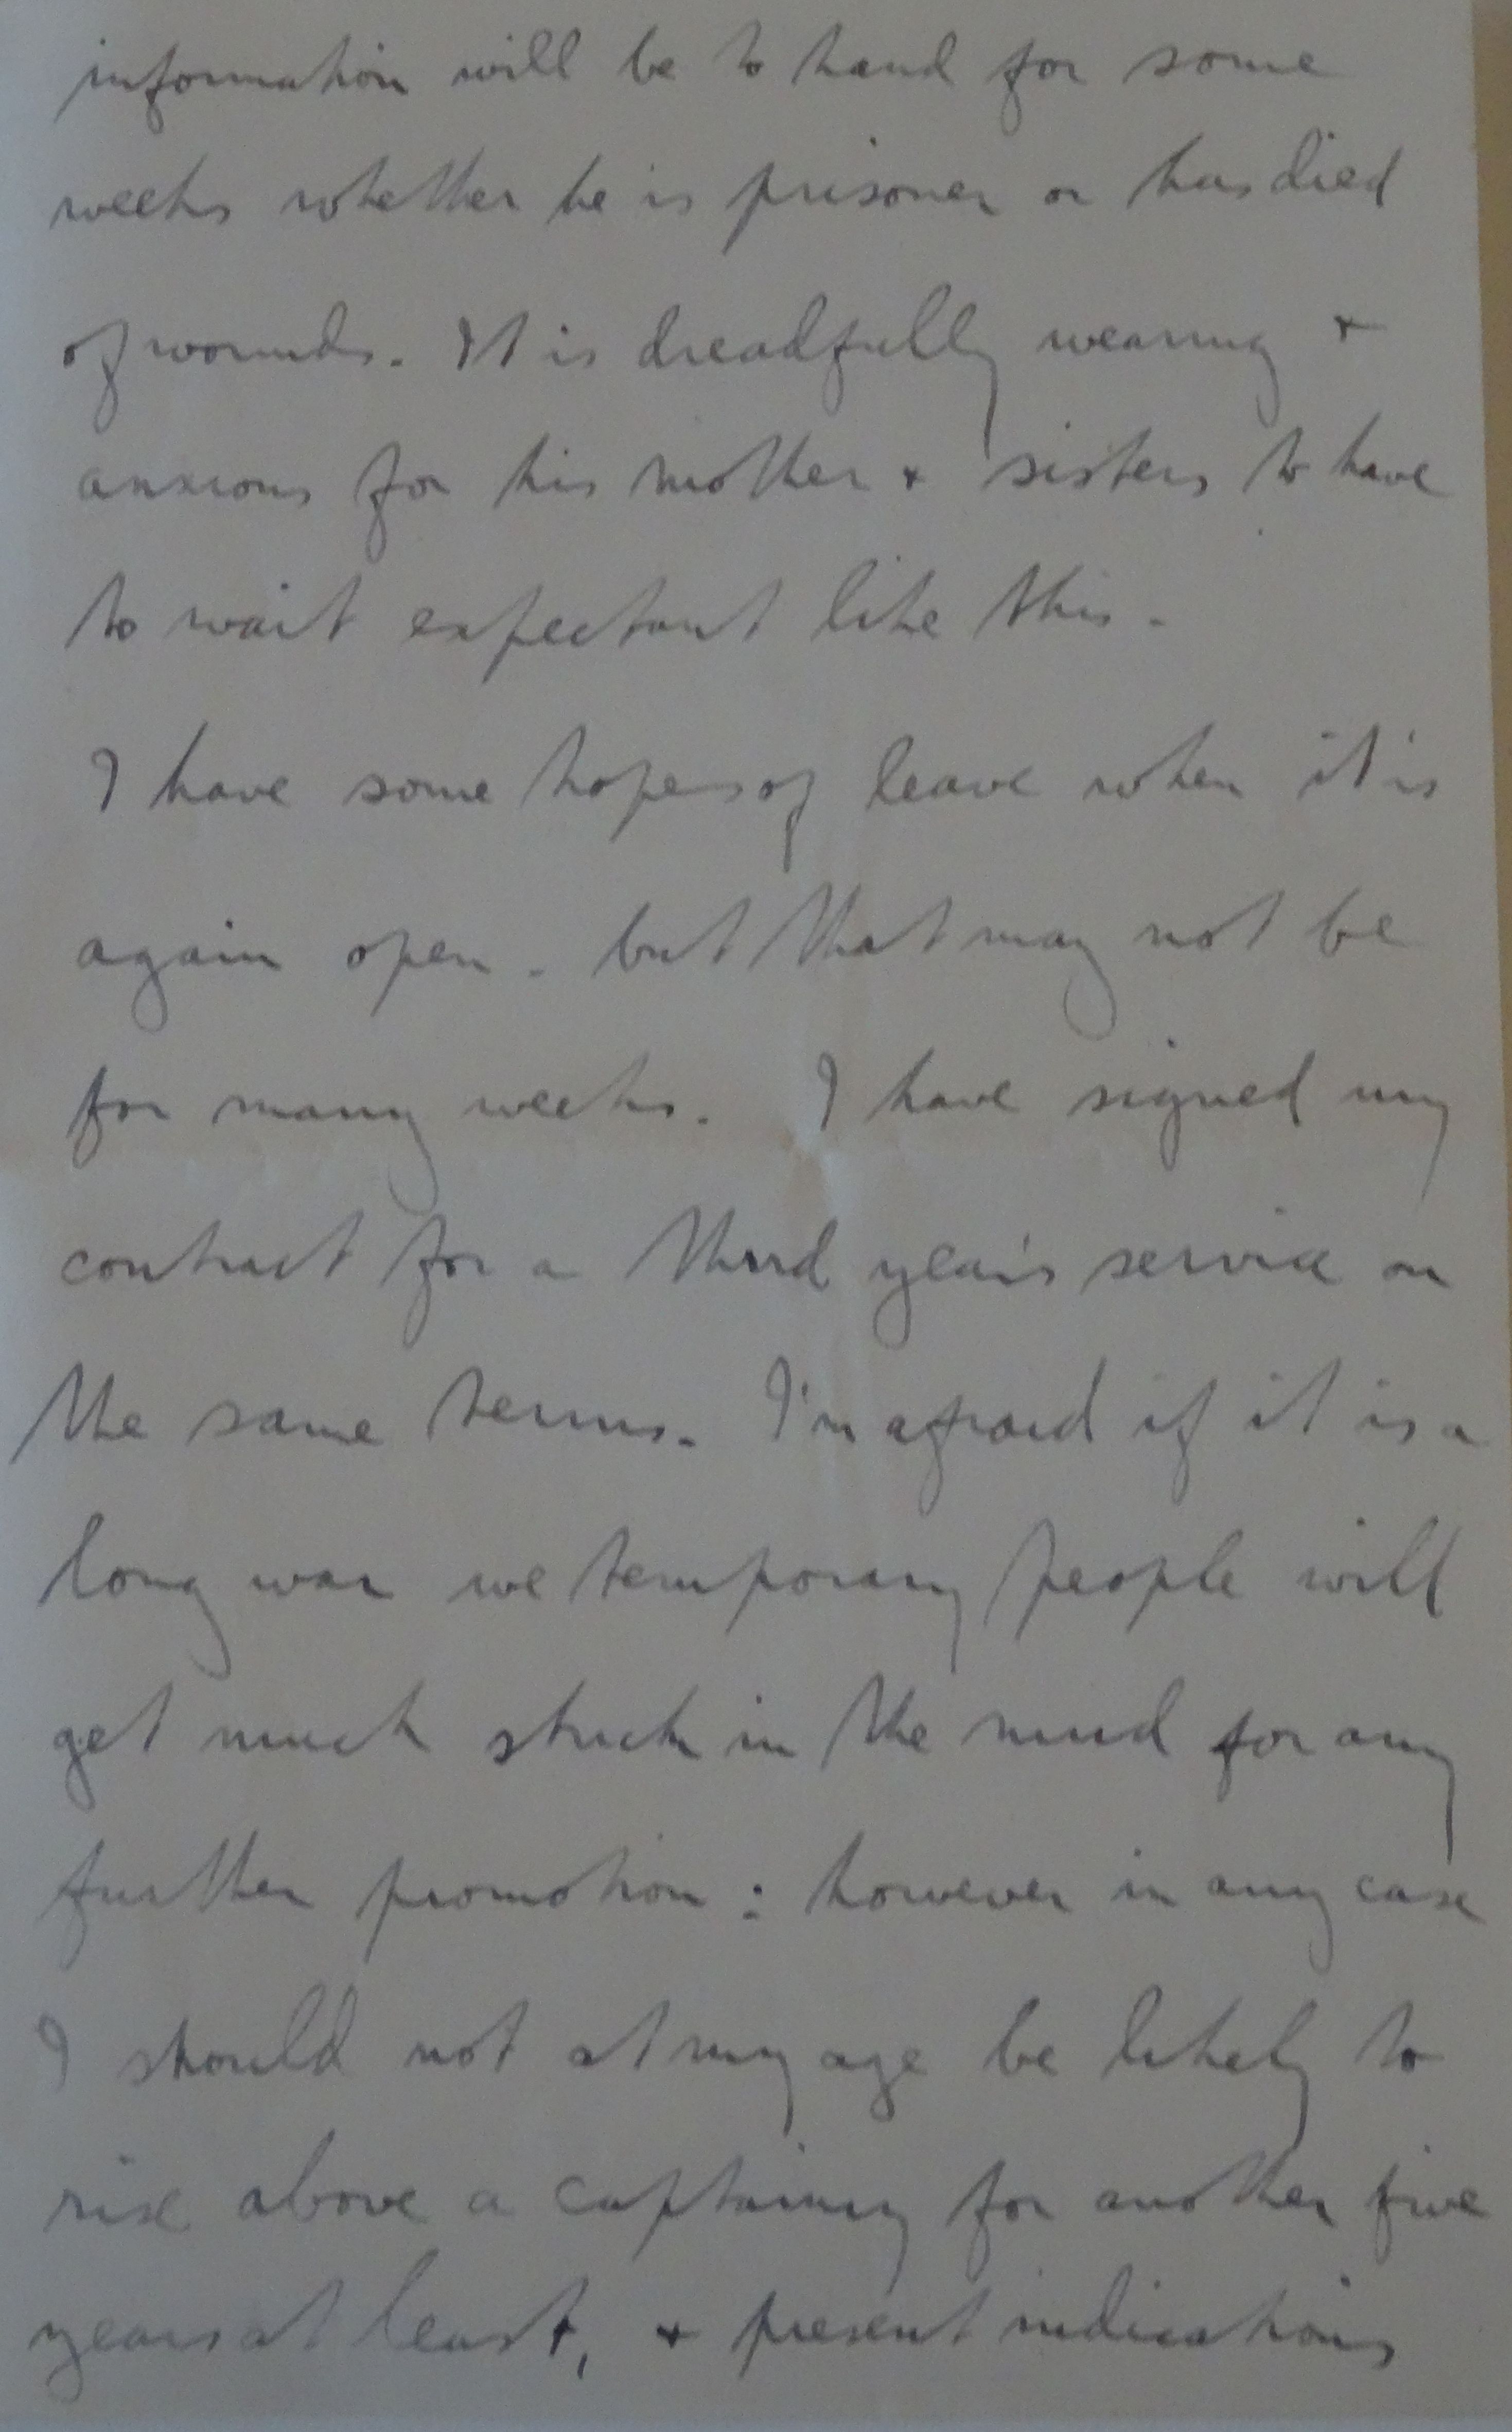 information will be to hand for some
weeks whether he is prisoner or has died
of wounds. It is dreadfully wearing +
anxious for his mother + sisters to have
to wait expectant like this.
I have some hopes of leave when it is
again open. but that may not be
for many weeks. I have signed my
contract for a third year's service on
the same terms. I'm afraid if it is a
long war we temporary people will
get much stuck in the mud for any
further promotion: however in any case
I should not at my age be likely to
rise above a captaincy for another five
years at least, + present indications